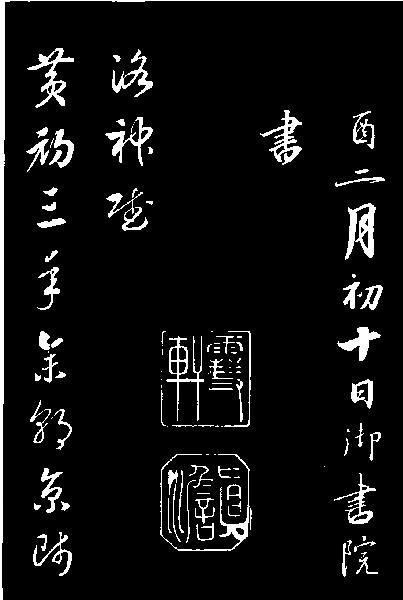 酉二月初十日御書院
書
洛神賦
黄初三年余朝京師